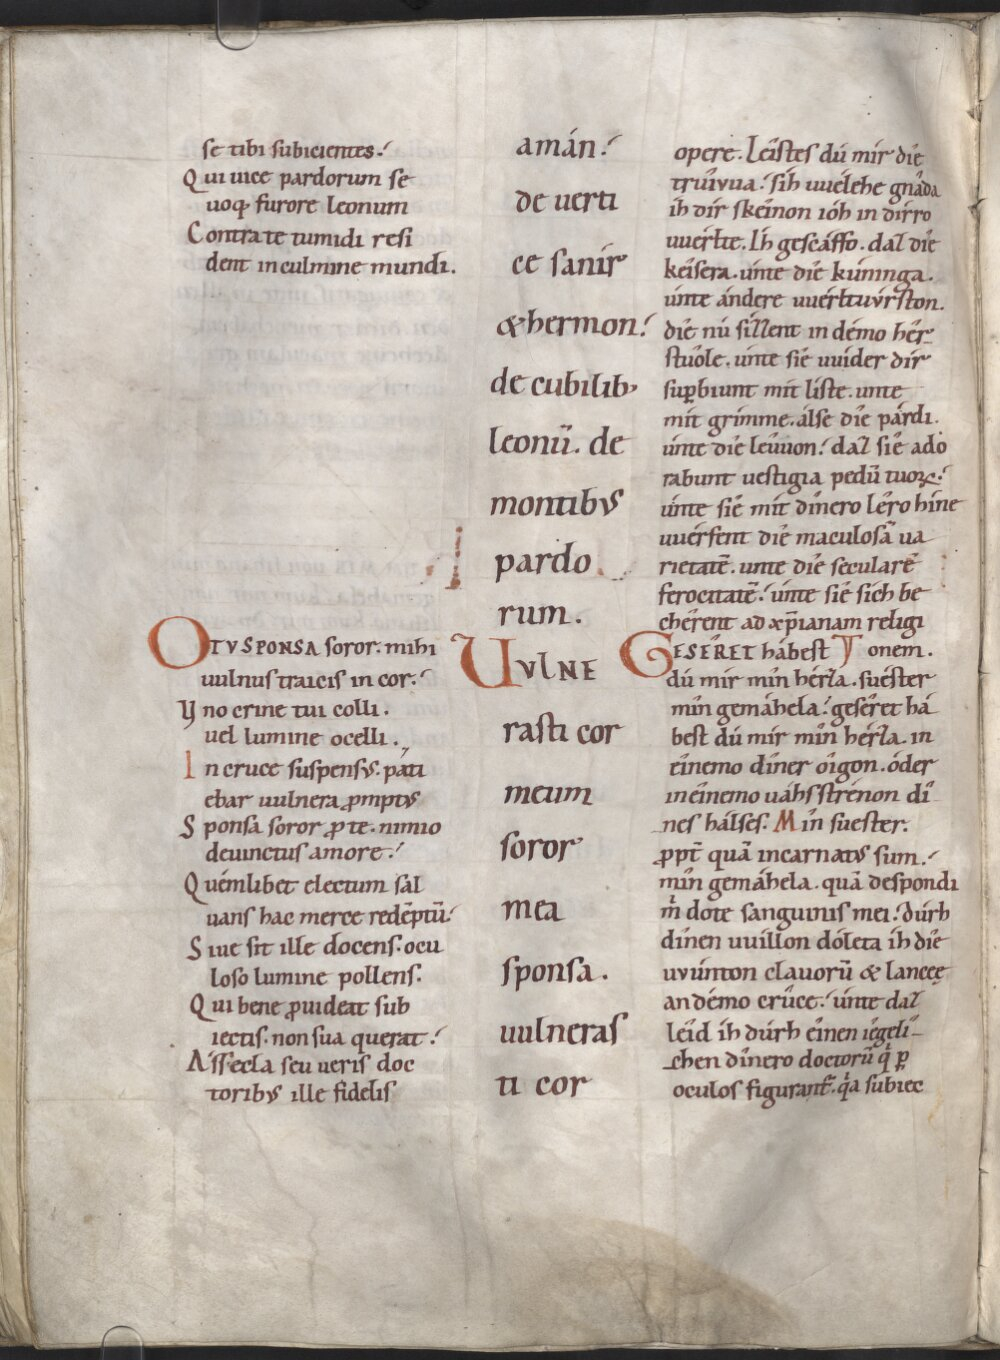 se tibi subicientes.
Qui uice pardorum se
uoq; furore leonum
Contra te tumidi resi
dent in culmine mundi.
O TU SPONSA soror. mihi
uulnus traicis in cor.
Vno crine tui colli.
uel lumine ocelli.
In cruce suspensus. pati
ebar uulnera ꝓmptus
Sponsa soror ꝓ te. nimio
deuinctus amore.
Quémlibet electum sal
uans hac merce redẽptũ.
Siue sit ille docens. ocu
loso lumine pollens.
Qui bene ꝓuideat sub
iectis. non sua querat.
Assecla seu ueris doc
toribus ille fidelis
amán.
de uerti
ce sanir
&hermon.
de cubilib;
leonũ. de
montibus
pardo
rum.
UULNE
rasti cor
meum
soror
mea
sponsa.
uulneras
ti cor
opere. Leîstes dú mír díe
trûvva. sîh uuélehe gnâda
íh dír skeînon ióh in dírro
uuérlte. Ih gescáffo. daz díe
keîsera. únte díe kúninga.
únte ándere uuérltuúrston.
díe nú sízzent in démo hêr
stuôle. únte síe uuíder dír
suꝑbiunt mit liste. unte
mit grimme. álse díe párdi.
únte díe leuuon. daz síe ado
rabunt uestigia pedũ tuoꝝ.
únte síe mít dînero lêro híne
uuérfent díe maculosã ua
rietatẽ. unte díe secularẽ
ferocitatẽ. únte síe sích be
chêrent ad xp̃ianam religi
onem.
GESÉRET hábest
dú mir mîn hérza. suéster
mîn gemáhela. geséret há
best dú mír mîn hérza. in
eînemo dîner oîgon. óder
in eînemo uáhsstrénon dî
nes hálses. Mîn suester.
ꝓpt̃ quã incarnatus sum.
mîn gemáhela. quã despondi
m̊ dote sanguinis mei. dúrh
dînen uuíllon dóleta íh díe
uvúnton clauorũ & lanceę
an démo crûce. únte daz
leîd íh dúrh eînen iêgelî
chen dînero doctorũ q̊ ꝑ
oculos figurant̃. q̊a subiec